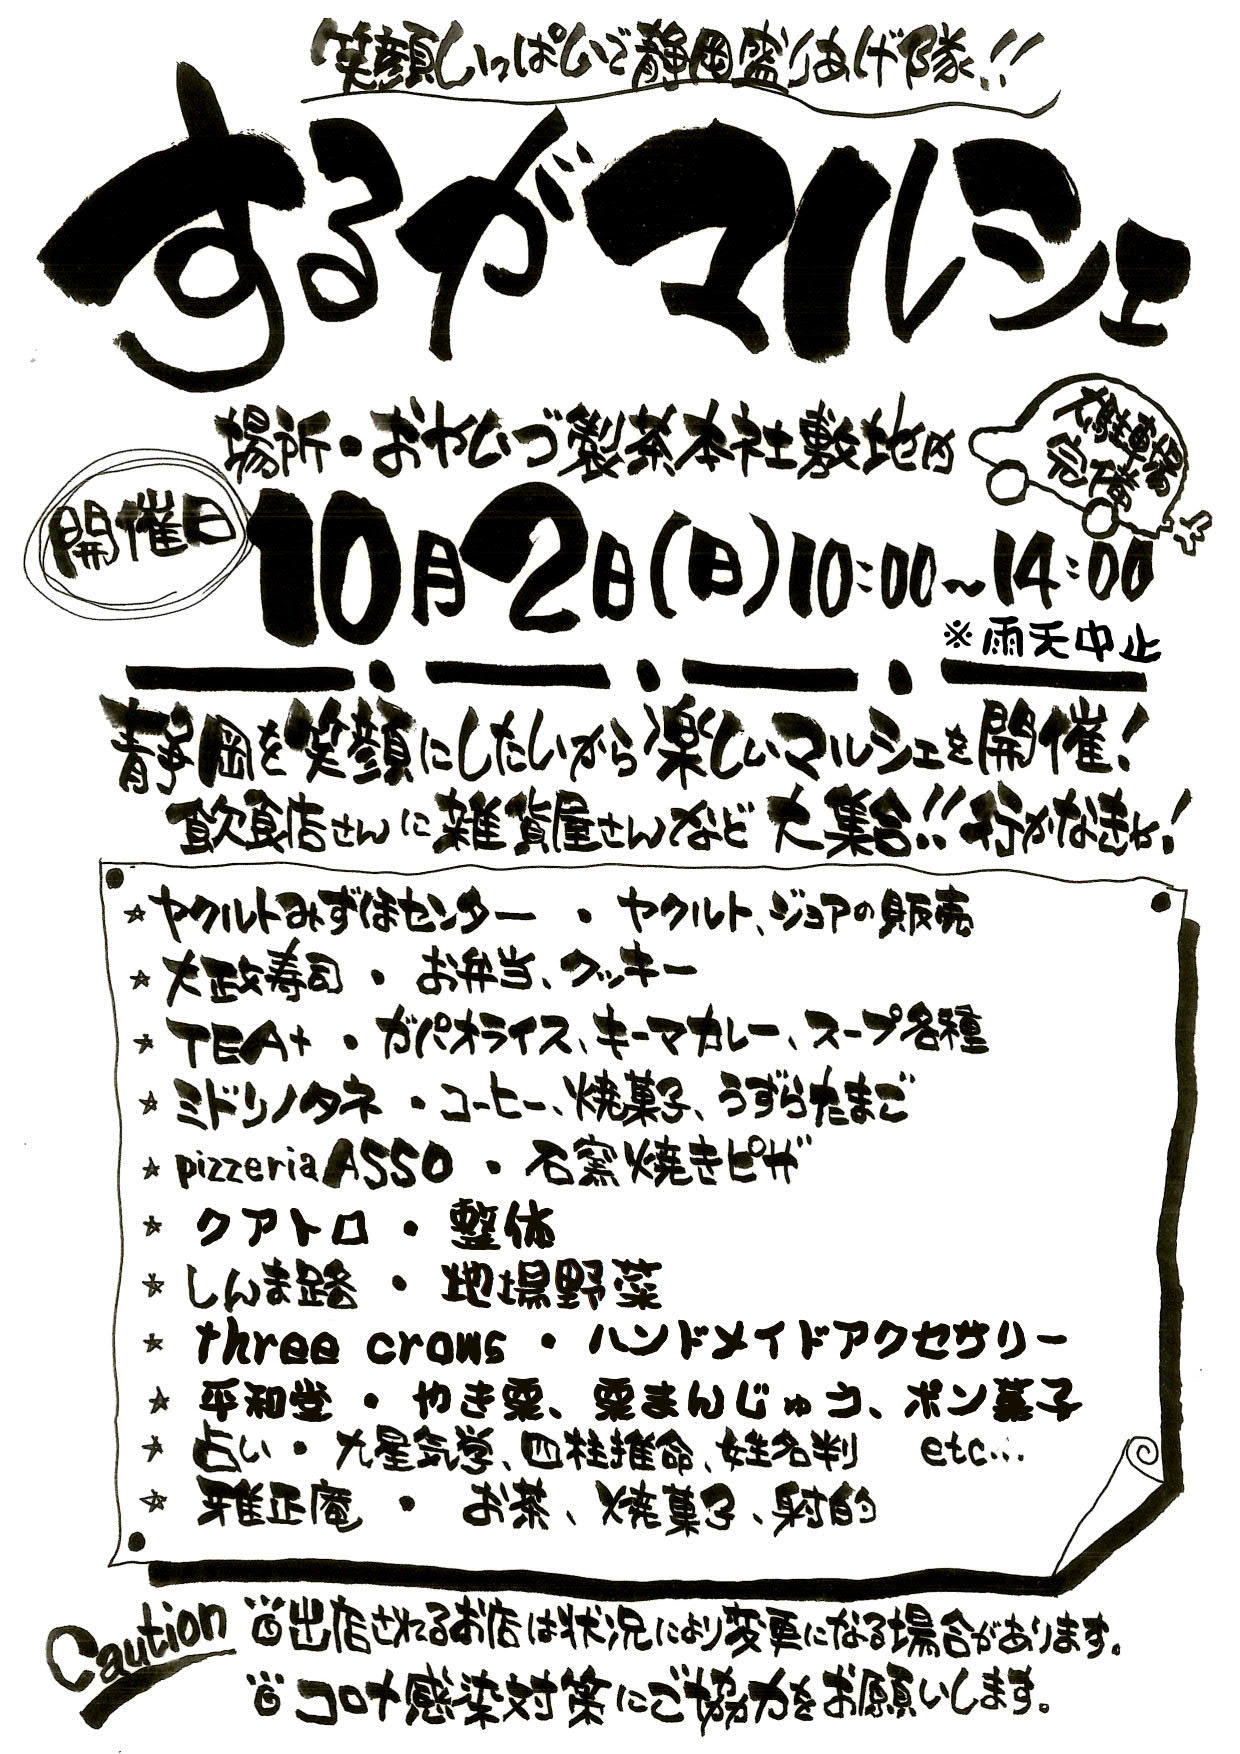 笑顔いっぱいで静岡盛りあげ隊!!
するがマルシェ
場所・おやいづ製茶本社敷地内
大駐車場
完備
開催日
10月2日(日)10:00~14:00
※雨天中止
静岡を笑顔にしたいから楽しいマルシェを開催!
飲食店さんに雑貨屋さんなど大集合!!行かなきゃ!
☆ヤクルトみずほセンター・ヤクルト、ジョアの販売
☆大政寿司・お弁当、クッキー
☆TEA+・ガパオライス、キーマカレー、スープ各種
☆ミドリノタネ・コーヒー、焼菓子、うずらたまご
☆pizzeria ASSO・石窯焼きピザ
☆クアトロ・整体
☆しんま路・地場野菜
☆three crows・ハンドメイドアクセサリー
☆平和堂・やき栗、栗まんじゅう、ポン菓子
☆占い・九星気学、四柱推命、姓名判 etc...
☆雅正庵・お茶、焼菓子、射的
Caution
出店されるお店は状況により変更になる場合があります。
コロナ感染対策にご協力をお願いします。